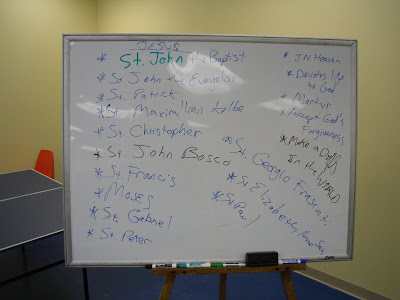 JESUS
* St. John the Baptist
* St. John the Evangelist
* St. Patrick
* St. Maximilian Kolbe
* St. Christopher
* St. John Bosco
* St. Francis
* Moses
* St. Gabriel
* St. Peter
* St. Faustina
* St. Elizabeth Ann Seton
* St. Paul
* In Heaven
* Devotes life to God
* Martyr
* Accept God's
Forgiveness
* Make a Diff
In the WORLD